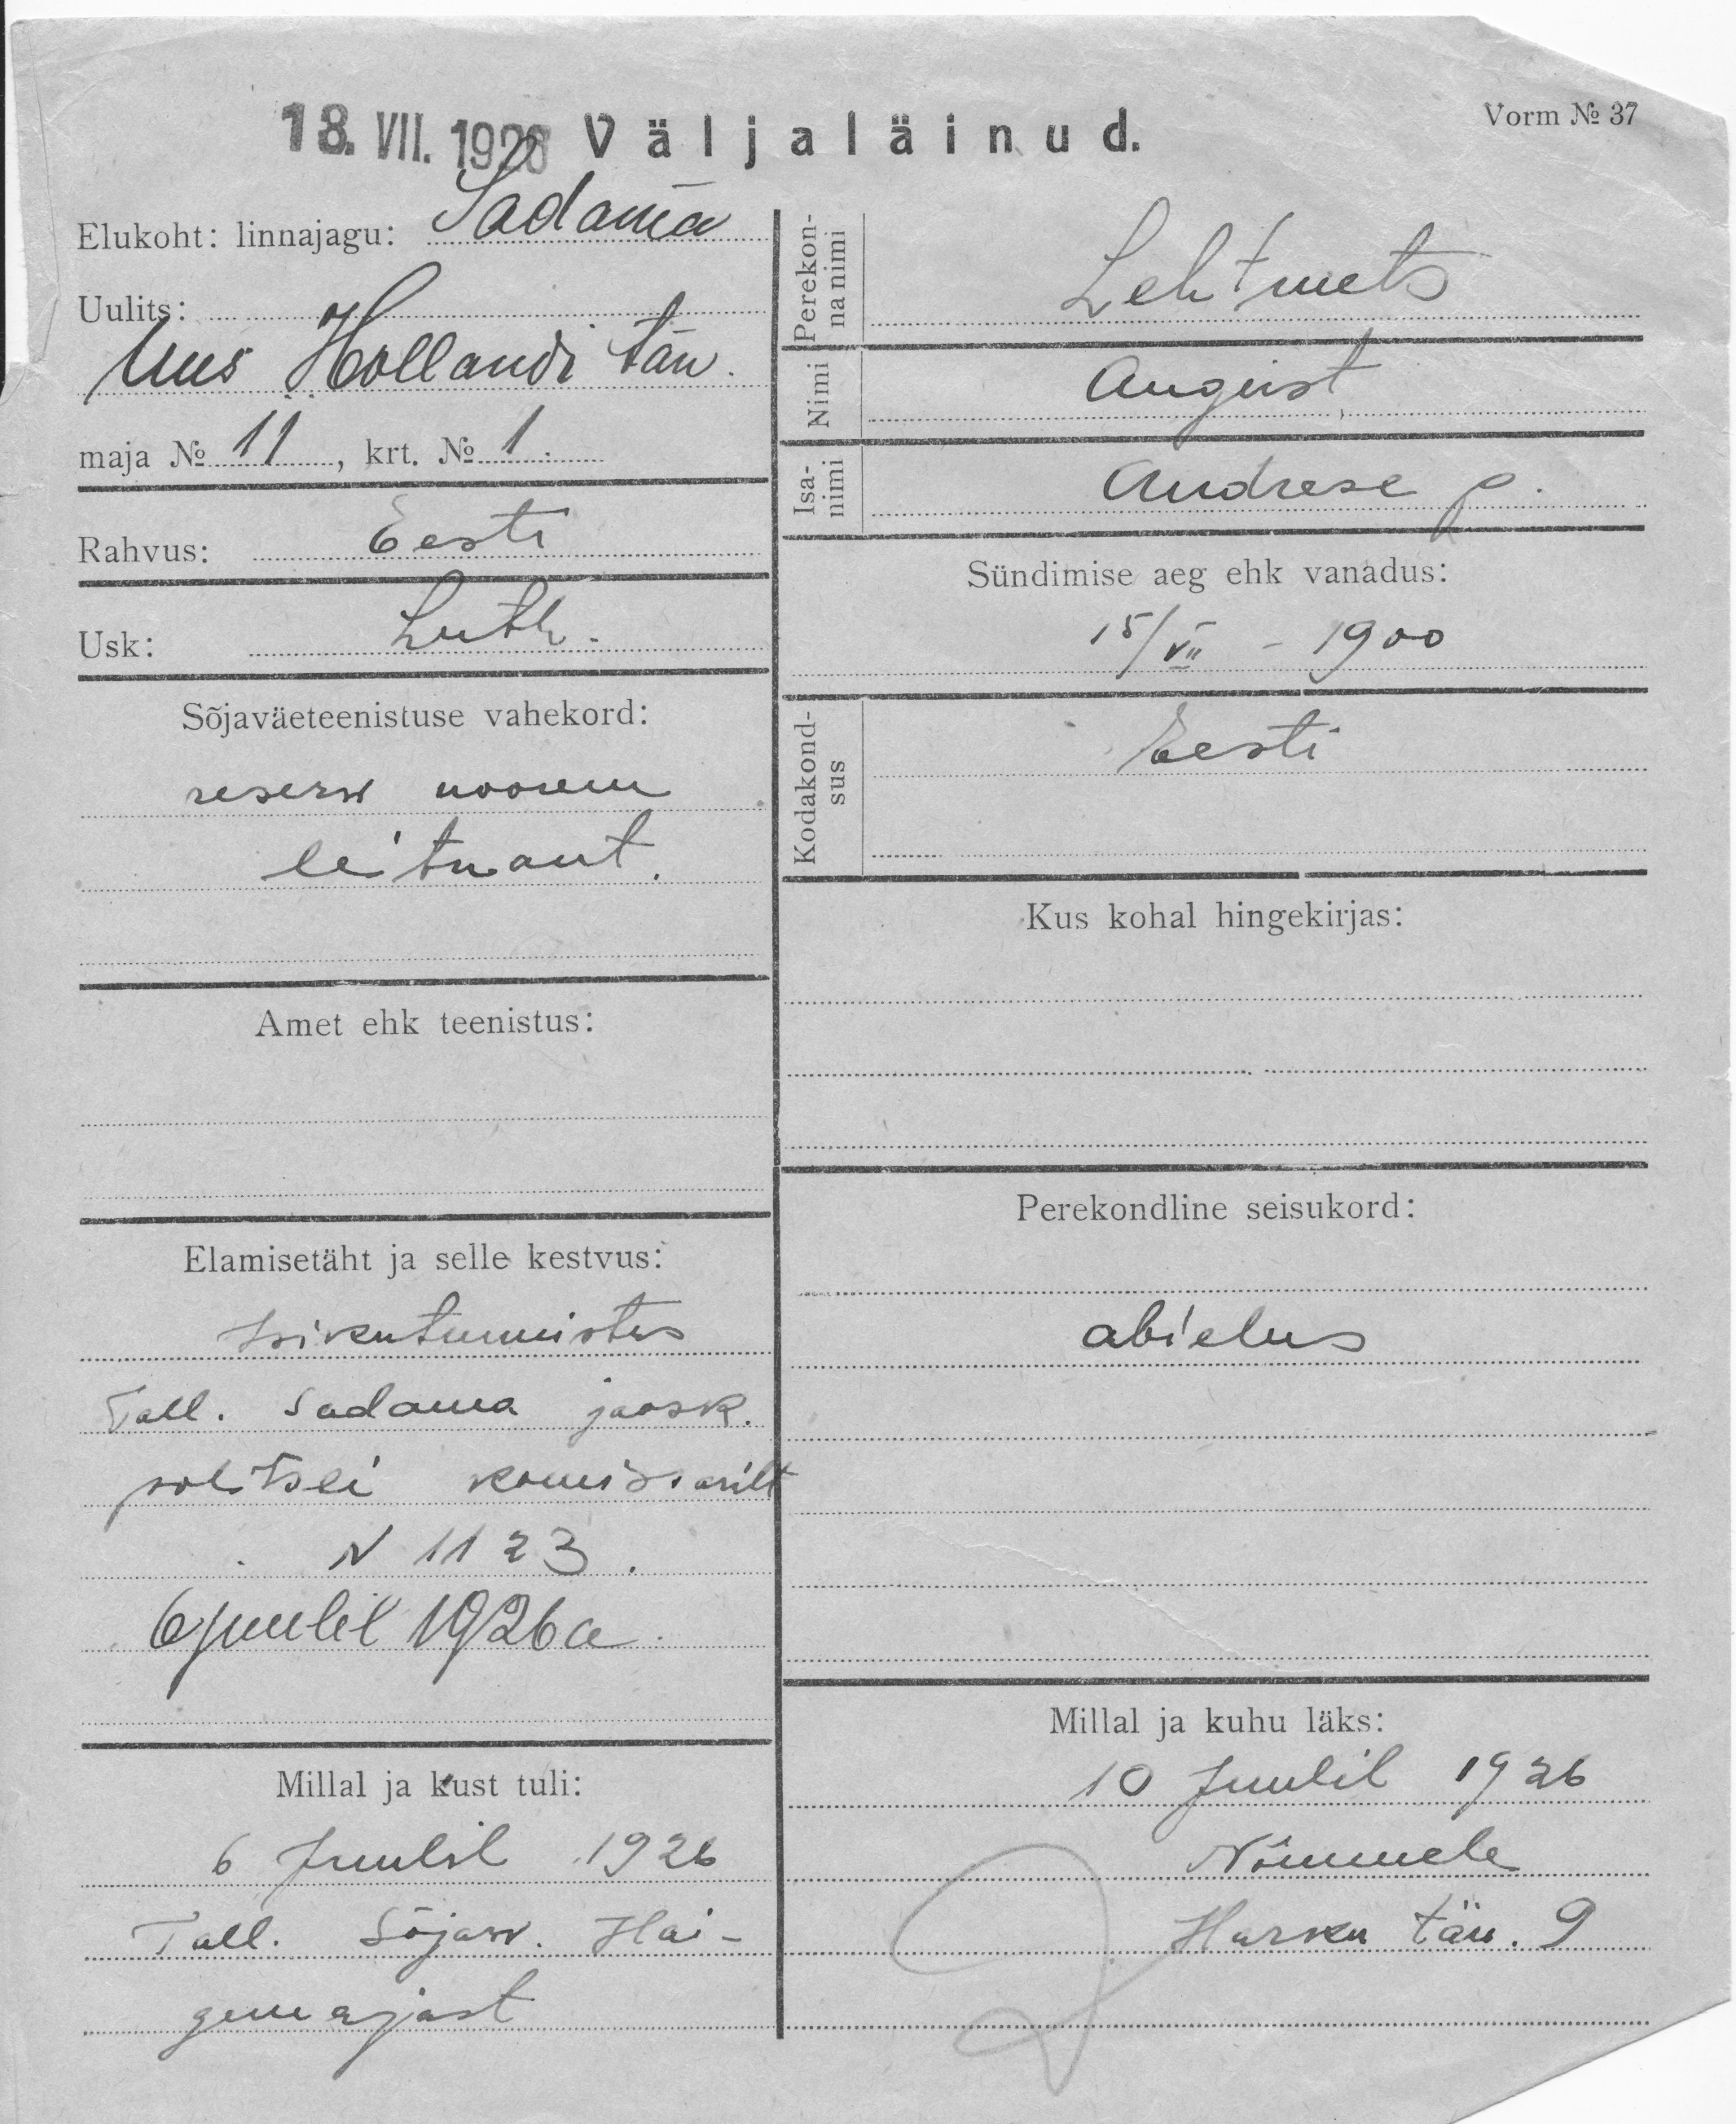 18. VII. 1926 Väljaläinud.
Vorm № 37
Elukoht: linnajagu: Sadama
Uulits:
Uus Hollandi tän.
maja № 11, krt. № 1.
Rahvus: Eesti
Usk: Luth.
Sõjaväeteenistuse vahekord:
reserw noorem
leitnant.
Amet ehk teenistus:
Elamisetäht ja selle kestvus:
Isikutunnistus
Tall. Sadama jaosk.
politsei komissarilt
N 1123.
6 juulil 1926 a.
Millal ja kust tuli:
6 Juulil 1926
Tall. Sõjaw. Hai-
gemajast
Perekon-
na nimi
Lehtmets
Nimi
August
Isa-
nimi
Andrese p.
Sündimise aeg ehk vanadus:
15/VII - 1900
Kodakond-
sus
Eesti
Kus kohal hingekirjas:
Perekondline seisukord:
abielus
Millal ja kuhu läks:
10 Juulil 1926
Nõmmele
Harku tän. 9